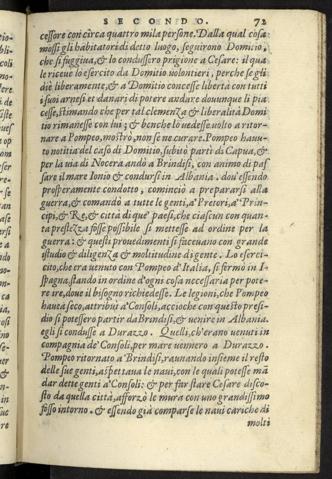 SECONDO. 72
cessore con circa quattro mila persone. Dalla qual cosa
mossi gli habitatori di detto luogo, seguirono Domitio,
che si fuggiva, & lo condussero prigione a Cesare: il qua
le riceue lo esercito da Domitio uolontieri, perche se gli
die liberamente, & a Domitio concesse libertà con tutti
i suoi arnesi et danari di potere andare dovunque li pia
cesse, stimando che per tal clemenza & liberalità Domi
tio rimanesse con lui; & benche lo uedesse uolto a ritor-
nare a Pompeo, nostrò, non se ne curare. Pompeo hauu-
to notitia del caso di Domitio, subito parti di Capua, &
per la uia di Nocera andò a Brindisi, con animo di paſ
sare il mare Ionio & condursi in Albania. dou'essendo
prosperamente condotto, cominciò a prepararsi alla
guerra, & comandò a tutte le genti, a' Pretori, a' Prin-
cipi, & Re, & città di que' paesi, che ciascun con quan-
ta prestezza fosse possibile si mettesse ad ordine per la
guerra: & questi prouedimenti si faceuano con grande
studio & diligenza & moltitudine di gente. Lo eserci-
cito, che era uenuto con Pompeo d'Italia, si fermò in I-
spagna, stando in ordine d'ogni cosa necessaria per pote-
re ire, doue il bisogno richiedesse. Le legioni, che Pompeo
hauea seco, attribuì a' Consoli, accioche con questo presi-
dio si potessero partir da Brindisi, & uenire in Albania.
egli si condusse a Durazzo. Quelli, ch'erano uenuti in
compagnia de' Consoli, per mare uennero a Durazzo.
Pompeo ritornato a' Brindisi, raunando insieme il resto
delle sue genti, aspettaua le naui, con le quali potesse mā
dar dette genti a' Consoli: & per far stare Cesare disco-
sto da quella città, afforzò le mura con uno grandissimo
fosso intorno. & essendo già comparse le naui cariche di
molti